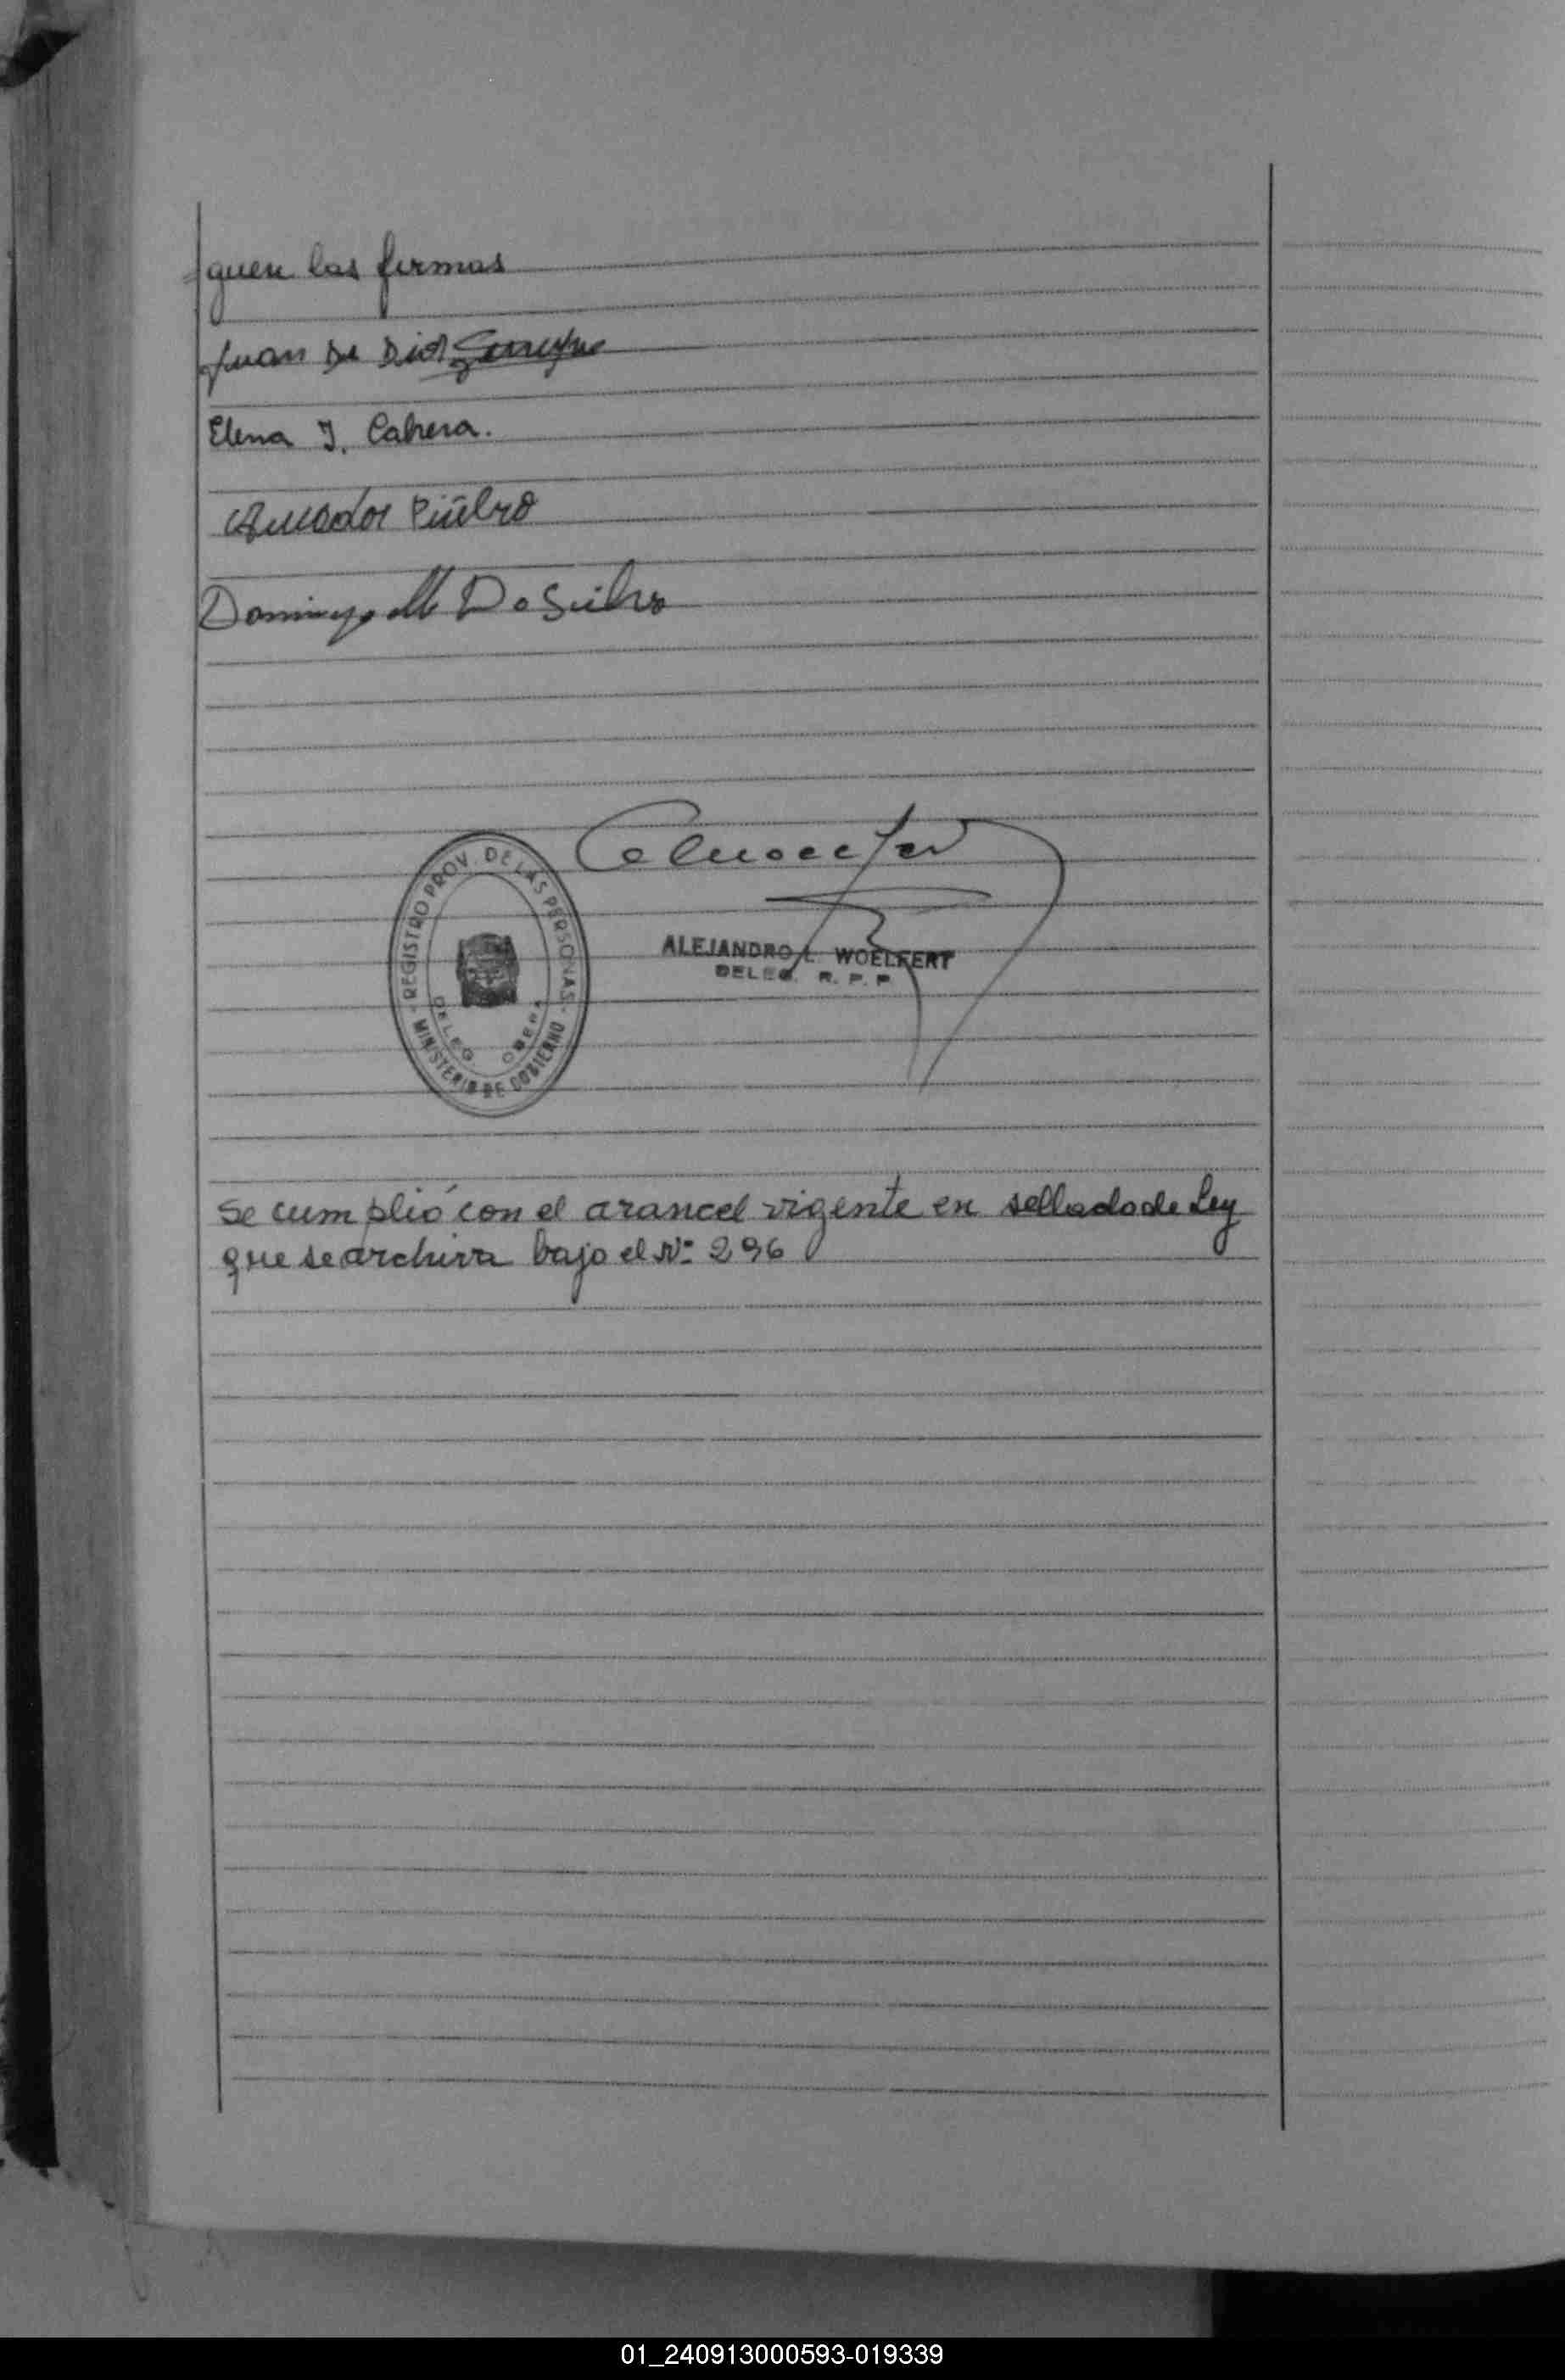 guen las firmas
Juan De Dios
Elena I. Cabrera.
Amador Piñeiro
Domingo M Da Silva
REGISTRO PROV. DE LAS PERSONAS
MINISTERIO DE GOBIERNO
DELEG OBERA
ALEJANDRO L. WOELFERT
DELEG. R. P. P.
Se cumplió con el arancel vigente en sellado de Ley
que se archiva bajo el Nº 296
01_240913000593-019339